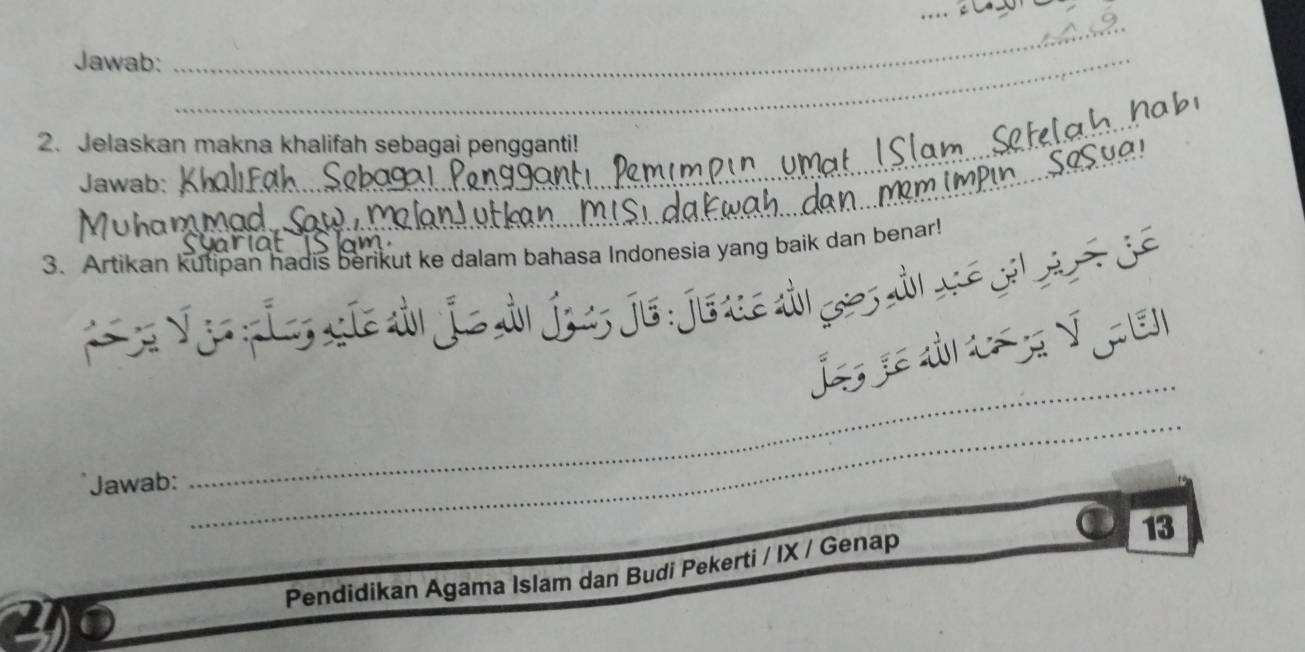 الدماء ....
Jawab: ....................
2. Jelaskan makna khalifah sebagai pengganti!
Jawab: Khalifah Sebagai Pengganti Pemimpin umat Islam Setelah nabi
Muhammad Saw, melanjutkan misi dakwah dan memimpin sesuai
Syariat Islam.
3. Artikan kutipan hadis berikut ke dalam bahasa Indonesia yang baik dan benar!
عَنْ جَرِيْرِ ابْنِ عَبْدِ اللهِ رَضِيَ اللهُ عَنْهُ قَالَ: قَالَ رَسُوْلُ اللهِ صَلَّى اللهُ عَلَيْهِ وَسَلَّمَ: مَنْ لَا يَرْحَمُ
النَّاسَ لَا يَرْحَمْهُ اللهُ عَزَّ وَجَلَّ
Jawab: ....................
13
Pendidikan Agama Islam dan Budi Pekerti / IX / Genap